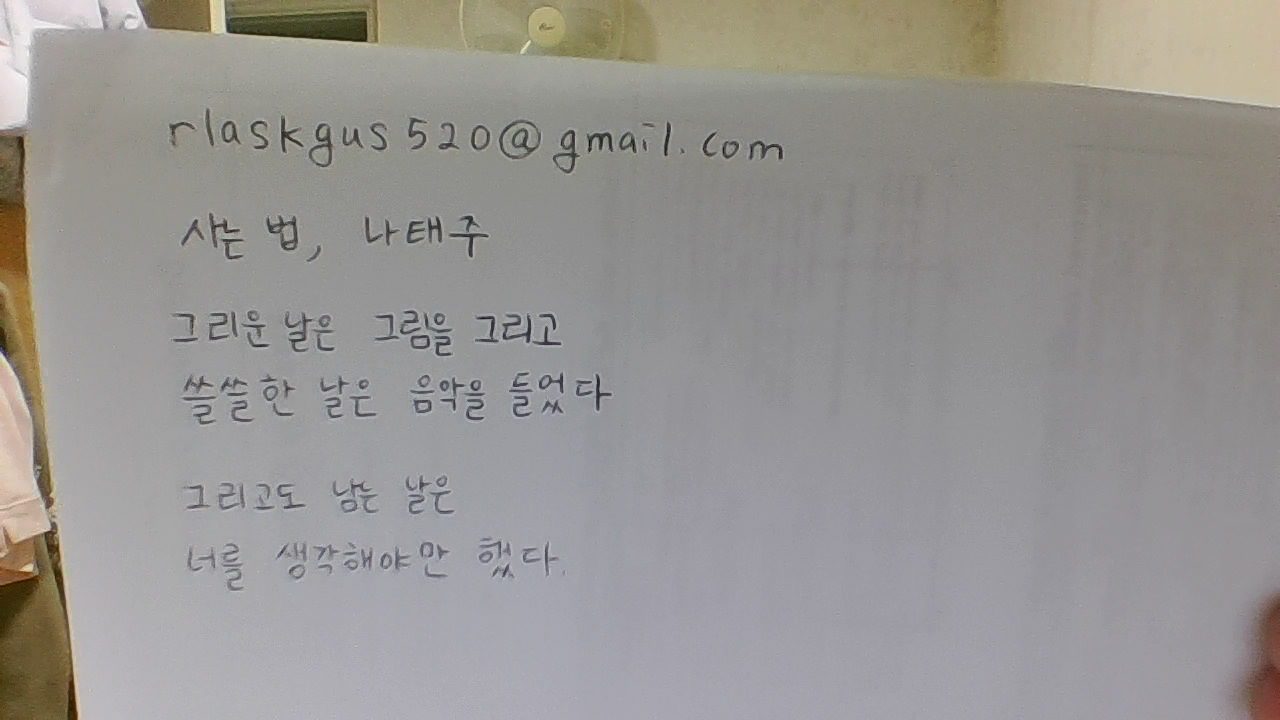 rlaskgus520@gmail.com
사는 법, 나태주
그리운 날은 그림을 그리고
쓸쓸한 날은 음악을 들었다
그리고도 남는 날은
너를 생각해야만 했다.